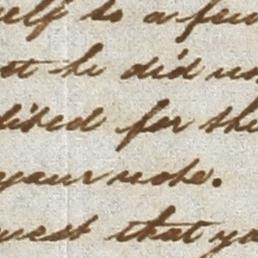 self to a few
at he did no
dited for the
your note.
quest that yo